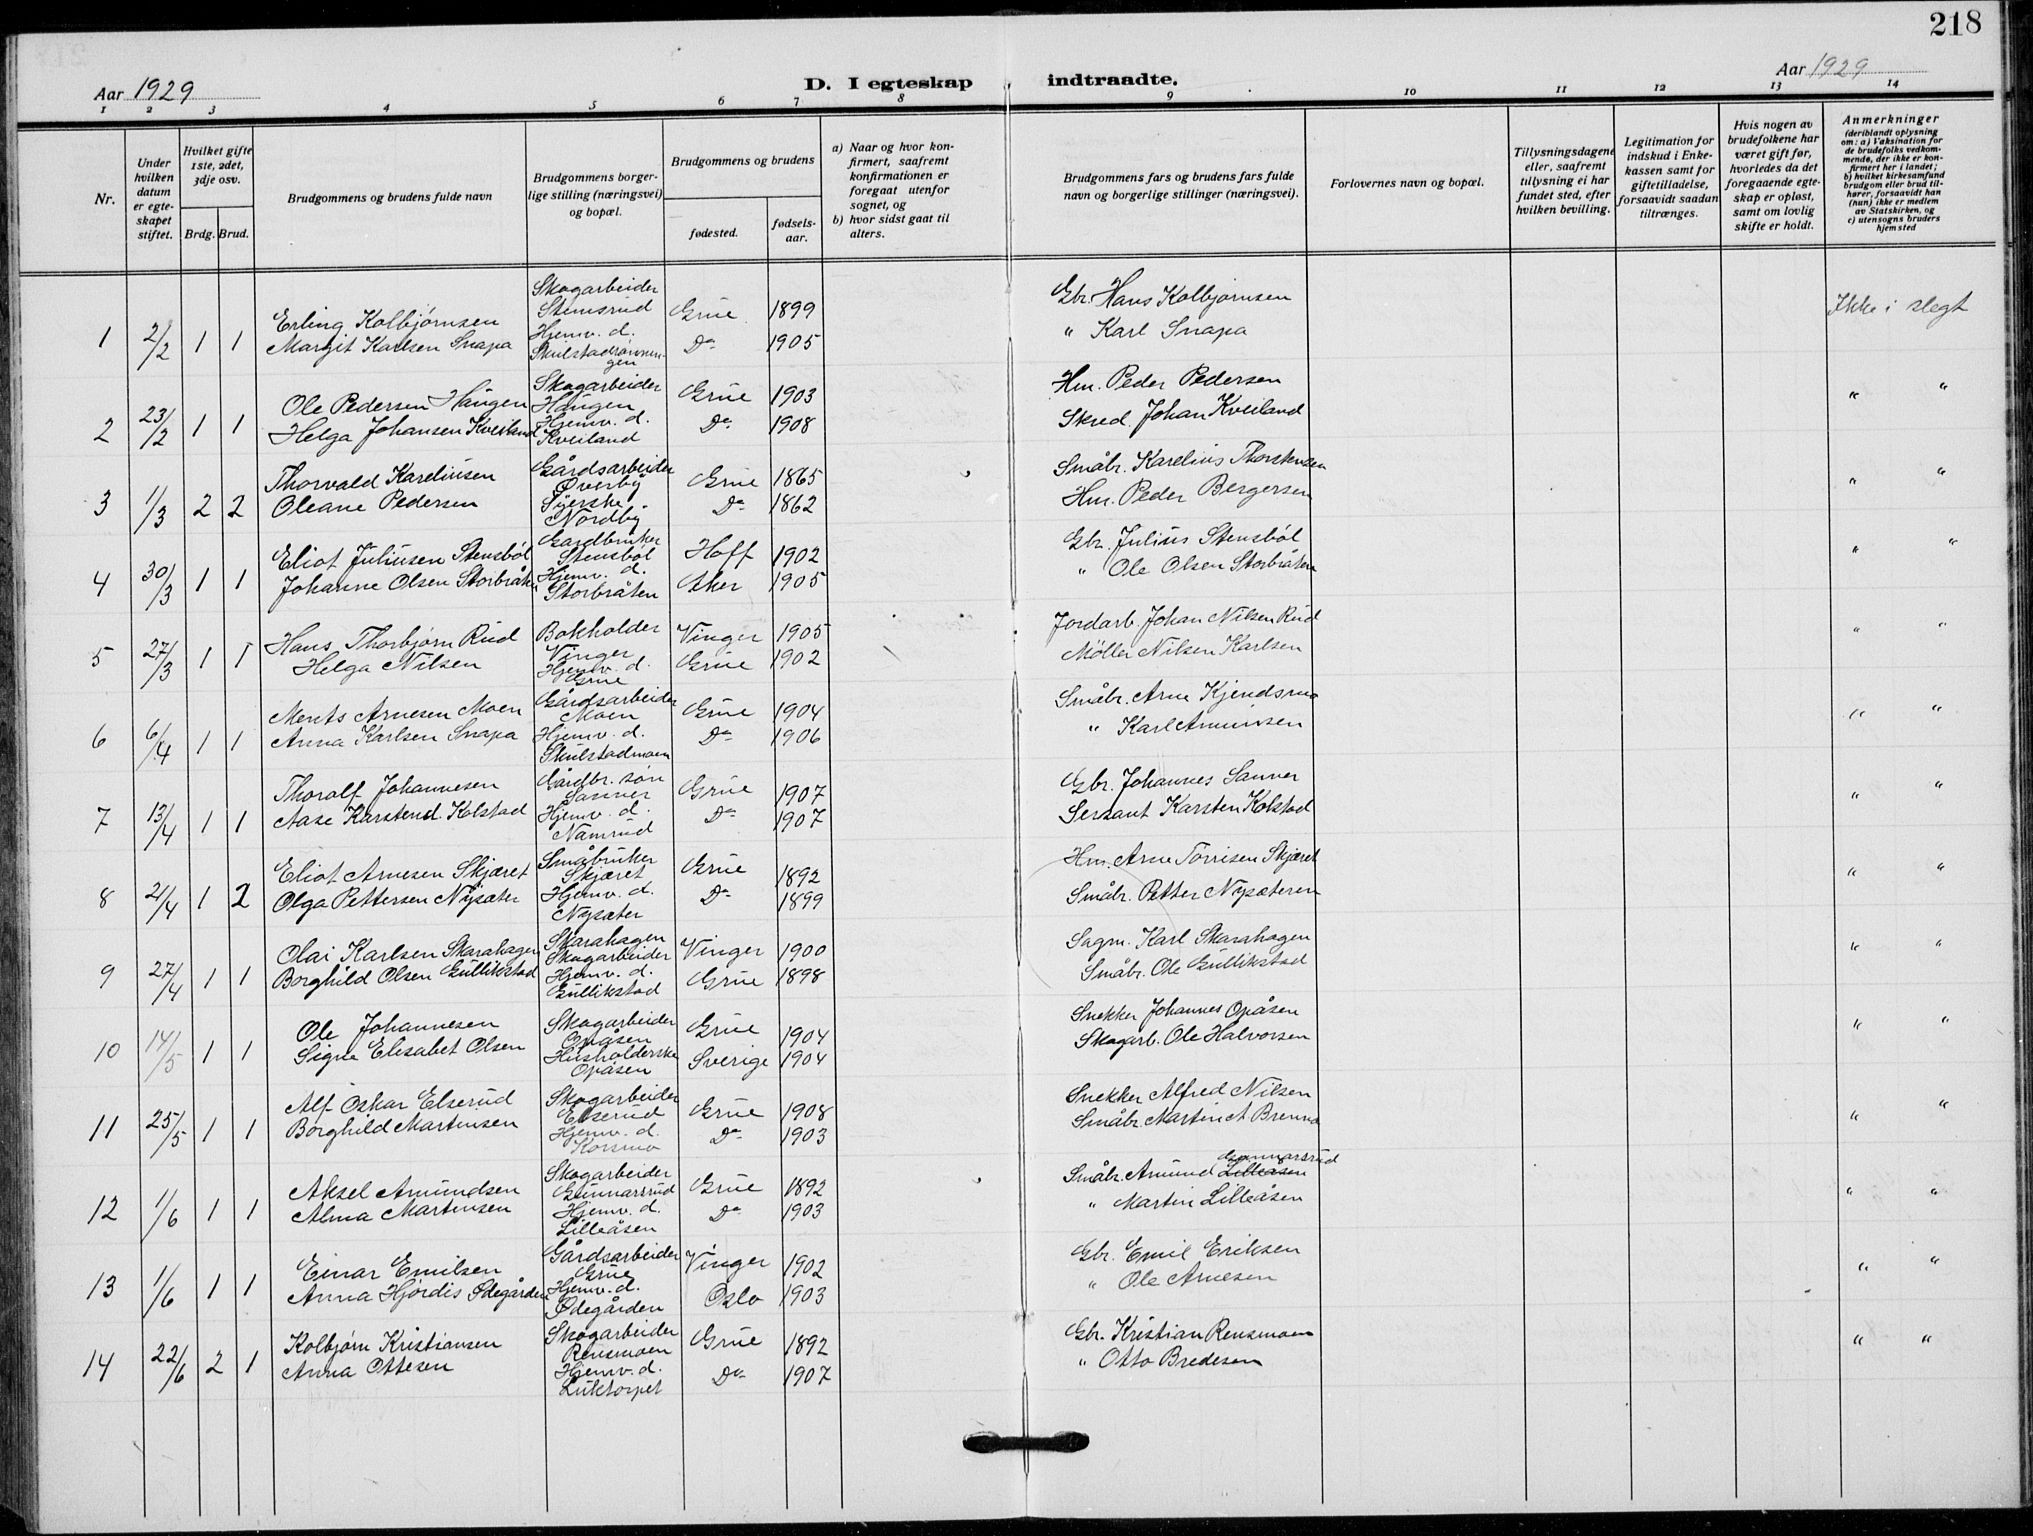 218
Aar 1929
D. I egteskap indtraadte.
Aar 1929
1 2 3 4 5 6 7 8 9 10 11 12 13 14
Nr.
Under hvilken datum er egteskapet stiftet.
Hvilket gifte 1ste, 2det, 3dje osv.
Brdg. Brud.
Brudgommens og brudens fulde navn
Brudgommens borgerlige stilling (næringsvei) og bopæl.
Brudgommens og brudens
fødested.
fødselsaar.
a) Naar og hvor konfirmert, saafremt konfirmationen er foregaat utenfor sognet, og
b) hvor sidst gaat til alters.
Brudgommens fars og brudens fars fulde navn og borgerlige stillinger (næringsvei).
Forlovernes navn og bopæl.
Tillysningsdagene eller, saafremt tillysning ei har fundet sted, efter hvilken bevilling.
Legitimation for indskud i Enkekassen samt for giftetilladelse, forsaavidt saadan tiltrænges.
Hvis nogen av brudefolkene har været gift før, hvorledes da det foregaaende egteskap er opløst, samt om lovlig skifte er holdt.
Anmerkninger
(deriblandt oplysning om: a) Vaksination for de brudefolks vedkommende, der ikke er konfirmert her i landet; b) hvilket kirkesamfund brudgom eller brud tilhører, forsaavidt han (hun) ikke er medlem av Statskirken, og c) utensogns bruders hjemsted
1 2/2 1 1 Erling Kolbjørnsen Skogarbeider Stemsrud Grue 1899 Gbr. Hans Kolbjørnsen Ikke i slegt
Margit Karlsen Snapa Hjemv. d. Skulstadrønningen Do 1905 " Karl Snapa
2 23/2 1 1 Ole Pedersen Haugen Skogarbeider Haugen Grue 1903 Hm. Peder Pedersen " "
Helga Johansen Kveiland Hjemv. d. Kveiland Do 1908 Skred. Johan Kveiland
3 1/3 2 2 Thorvald Kareliusen Gårdsarbeider Øverby Grue 1865 Småbr. Karelius Thorstensen " "
Oleane Pedersen Syerske Nordby Do 1862 Hm. Peder Bergersen
4 30/3 1 1 Eliot Juliusen Stensbøl Gardbruker Stensbøl Hoff 1902 Gbr. Julius Stensbøl " "
Johanne Olsen Storbråten Hjemv. d. Storbråten Aker 1905 " Ole Olsen Storbråten
5 27/3 1 1 Hans Thorbjørn Rud Bokholder Vinger Vinger 1905 Jordarb. Johan Nilsen Rud " "
Helga Nilsen Hjemv. d. Grue Grue 1902 Møller Nilsen Karlsen
6 6/4 1 1 Ments Arnesen Moen Gårdsarbeider Moen Grue 1904 Småbr. Arne Kjendsmo " "
Anna Karlsen Snapa Hjemv. d. Skulstadmoen Do 1906 " Karl Amunsen
7 13/4 1 1 Thoralf Johannesen Gårdbr. søn Sanner Grue 1907 Gbr. Johannes Sanner " "
Aase Karstend. Kolstad Hjemv. d. Namrud Do 1907 Sersant Karsten Kolstad
8 21/4 1 2 Eliot Arnesen Skjæret Småbruker Skjæret Grue 1892 Hm. Arne Torrisen Skjæret " "
Olga Pettersen Nysæter Hjemv. d. Nysæter Do 1899 Småbr. Petter Nysæteren
9 27/4 1 1 Olai Karlsen Skarahagen Skarahagen Skogarbeider Vinger 1900 Sagm. Karl Skarahagen " "
Borghild Olsen Gullikstad Hjemv. d. Gullikstad Grue 1898 Småbr. Ole Gullikstad
10 14/5 1 1 Ole Johannesen Skogarbeider Opåsen Grue 1904 Snekker Johannes Opåsen " "
Signe Elisabet Olsen Husholderske Opåsen Sverige 1904 Skogarb. Ole Halvorsen
11 25/5 1 1 Alf Oskar Elserud Skogarbeider Elserud Grue 1908 Snekker Alfred Nilsen " "
Borghild Martinsen Hjemv. d. Korsmo Do 1903 Småbr. Martin A Brenna
12 1/6 1 1 Aksel Amundsen Skogarbeider Gunnarsrud Grue 1892 Småbr. Amund Lilleåsen Gunnarsrud " "
Alma Martinsen Hjemv. d. Lilleåsen Do 1903 " Martin Lilleåsen
13 1/6 1 1 Einar Emilsen Gårdsarbeider Grue Vinger 1902 Gbr. Emil Eriksen " "
Anna Hjørdis Ødegården Hjemv. d. Ødegården Oslo 1903 " Ole Arnesen
14 22/6 2 1 Kolbjørn Kristiansen Skogarbeider Rensmoen Grue 1892 Gbr. Kristian Rensmoen " "
Anna Ottesen Hjemv. d. Luktorpet Do 1907 " Otto Bredesen